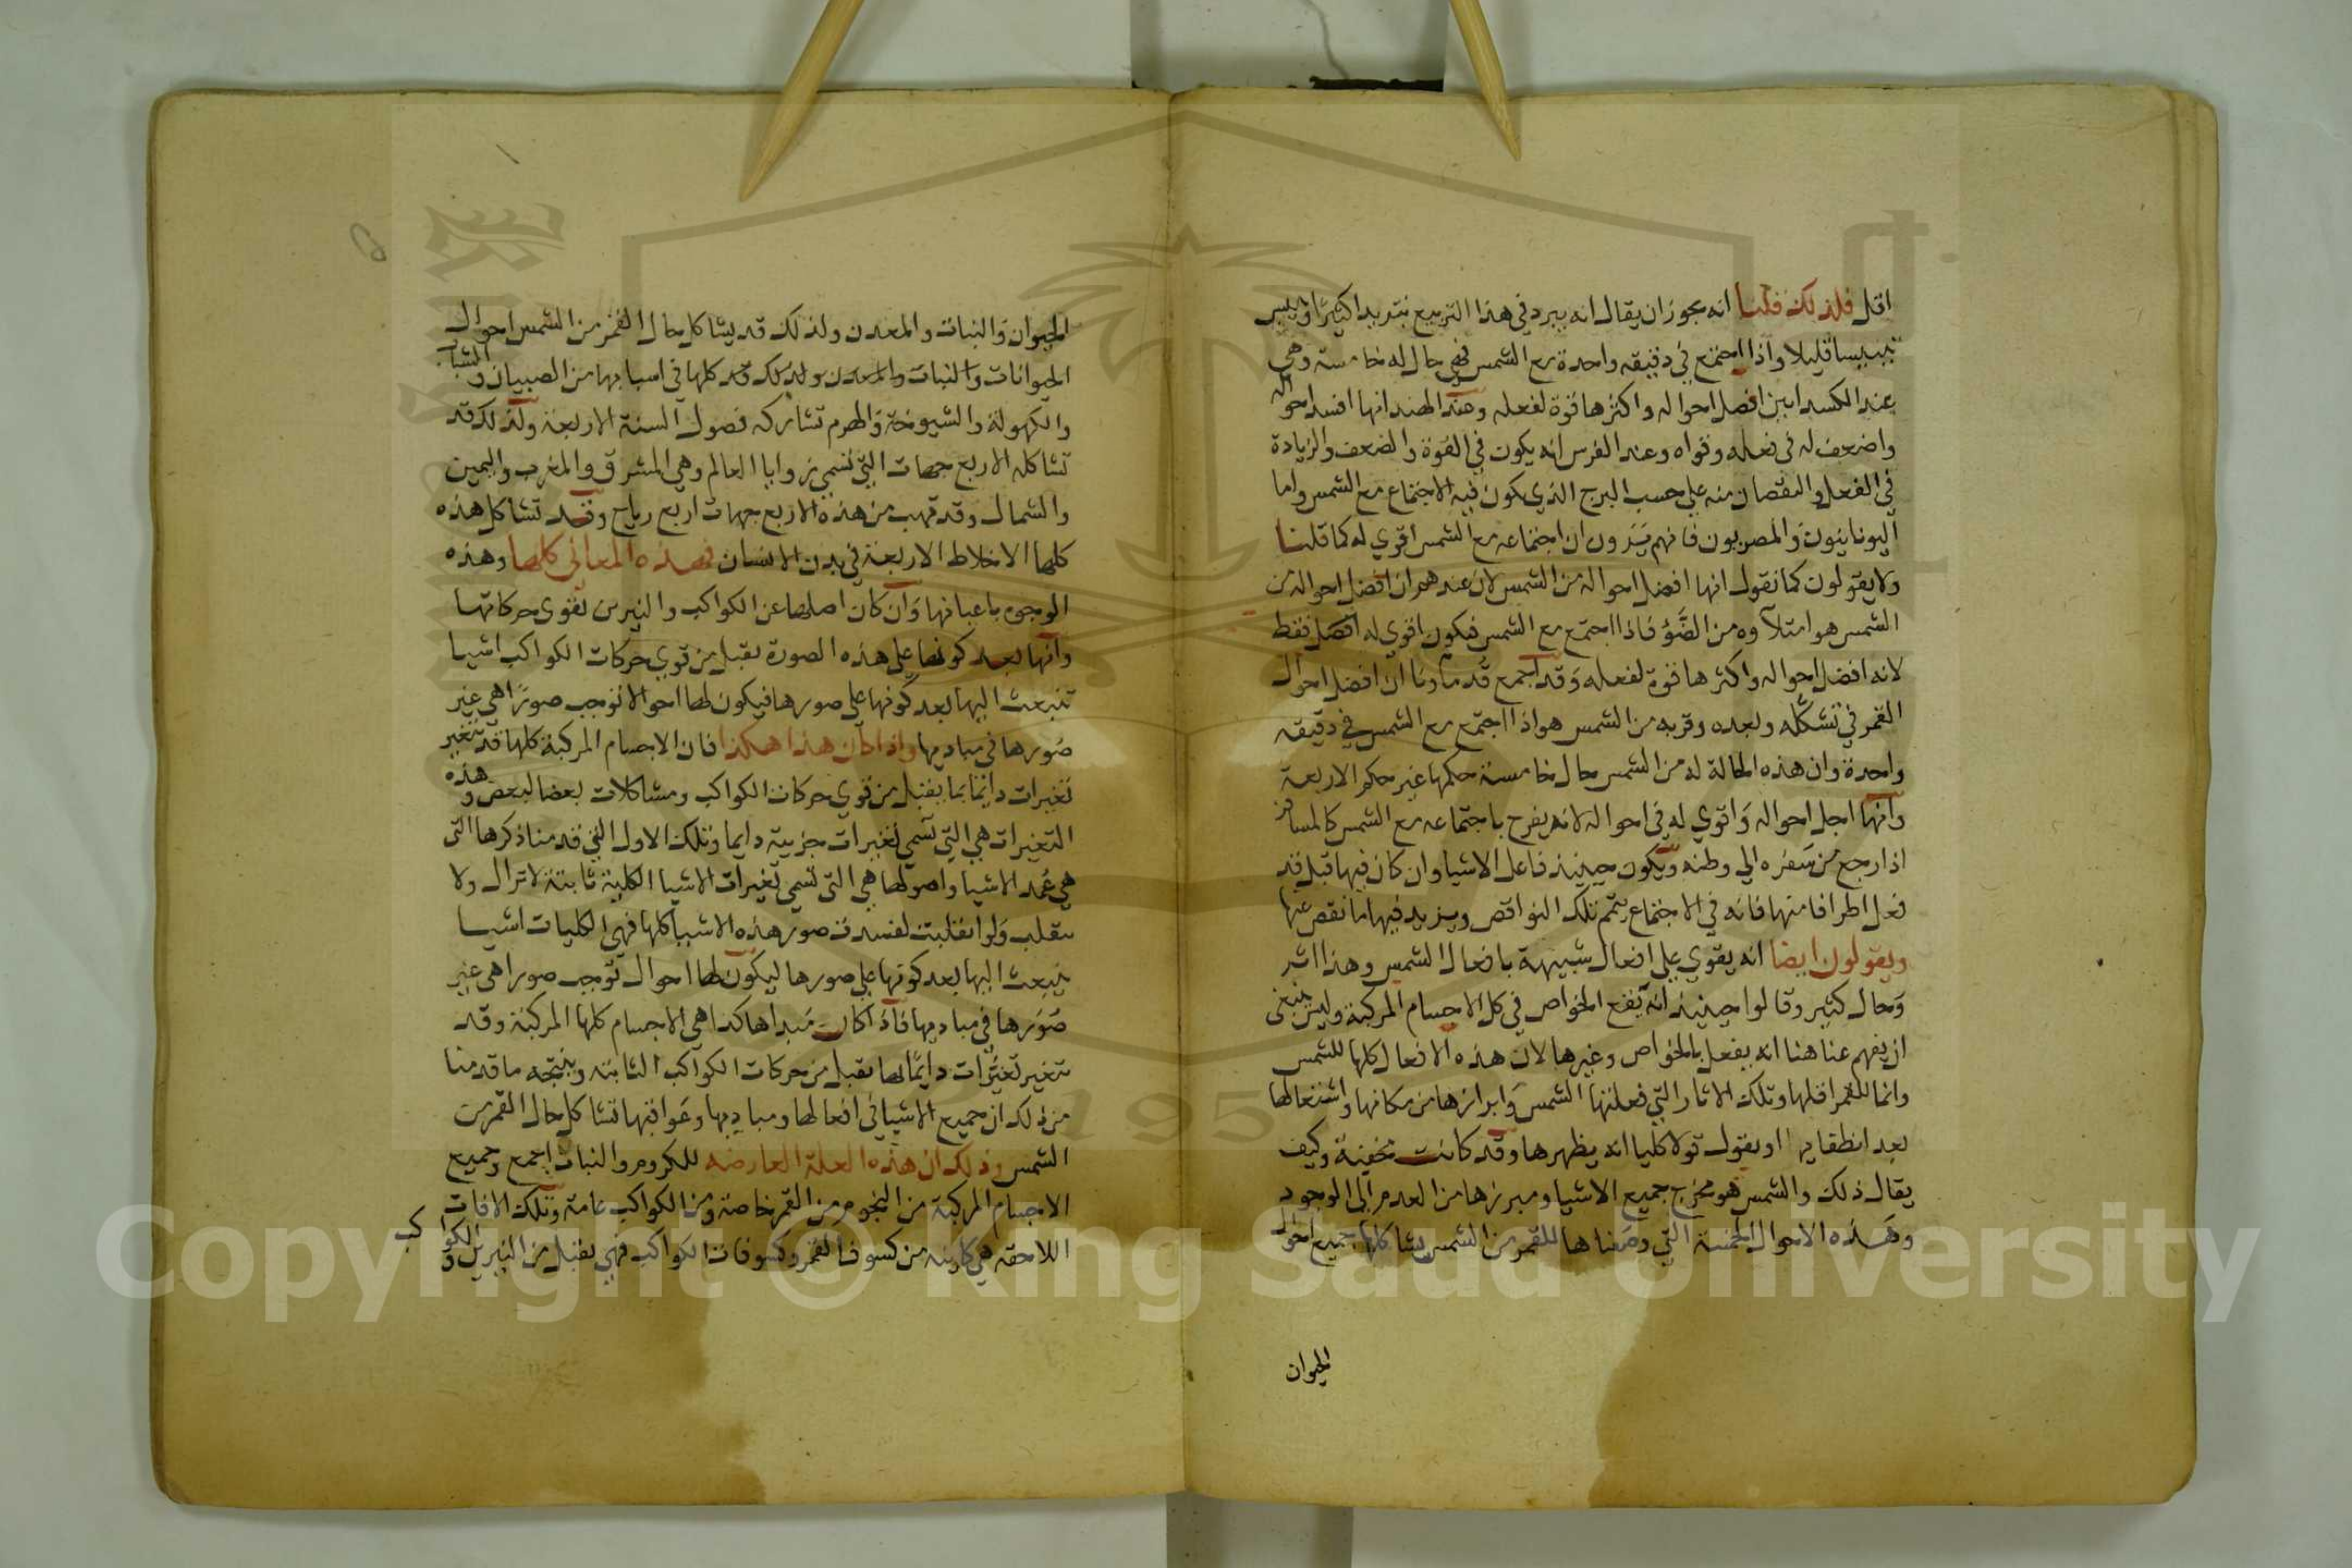 اقل فلذلك قلنا انه يجوز ان يقال انه يبرد في هذا التربيع تبريدا كثيرا وييبس
تيبيسا قليلا واذا اجتمع في دقيقه واحدة مع الشمس فهي حال له خامسته وهي
عند الكسدانيين افضل احواله واكثرها قوة لفعله وعند الهند انها افسد احواله
واضعف له في فعله وقواه وعند الفرس انه يكون في القوة والضعف والزيادة
في الفعل والنقصان منه على حسب البرج الذي يكون فيه الاجتماع مع الشمس واما
اليونانيون والمصريون فانهم يَرَون ان اجتماعه مع الشمس اقوي له كما قلنا
ولا يقولون كما نقول انها افضل احواله من الشمس لان عندهم ان افضل احواله من
الشمس هو امتلآوه من الضَّوُ فاذا اجتمع مع الشمس فيكون اقوي له افضل فقط
لانه افضل احواله واكثرها قوة لفعله وقد اجمع قُدماونا ان افضل احوال
القمر في تشكّله وبعده وقربه من الشمس هو اذا اجتمع مع الشمس في دقيقه
واحدة وان هذه الحالة له من الشمس حال خامسة حكمها غير حكم الاربعة
وانها اجل احواله وَاقوي له في احواله لانه يفرح باجتماعه مع الشمس كالمسافر
اذا رجع من سَفره الي وطنه ويكون حينيذ فاعل الاشيا وان كان فيها قبل قد
فعل اطرافا منها فانه في الاجتماع يتمم تلك النواقص ويزيد فيها ما نقص عنها
ويقولون ايضا انه يقوي على افعال شبيهة بافعال الشمس وهذا اشر
وَحال كثير وقالوا حينيذ انه ينفع الخواص في كل الاجسام المركبة وليس ينبغى
ان يفهم عنا هنا انه يفعل بالخواص وغيرها لان هذه الافعال كلها للشمس
وانما للقمر اقلها وتلك الاثار التي فعلتها الشمس وَابرازها من مكانها واشتعالها
بعد انطفايها او يقول قولا كليا انه يظهرها وقد كانت مخفية وكيف
يقال ذلك والشمس هو مخرج جميع الاشيا ومبرزها من العدم الى الوجود
وهَذه الاحوال الخمسة التي وصفناها للقمر من الشمس يشاكلها جميع احوال
الحيوان
الحيوان وَالنبات والمعدن ولذلك قد يشاكل حال القمر من الشمس احوال
الحيوانات والنبات والمعدن ولذلك قد كلها في اسبابها من الصبيان والشباب
والكهولة والشيوخة وَالهرم تشاركه فصول السنة الاربعة ولذلك قد
تشاكله الاربع جهات التي تسمي زوايا العالم وهي المشرق والمغرب واليمين
والشمال وقد تهب من هذه الاربع جهات اربع رياح وقد تشاكل هذه
كلها الاخلاط الاربعة في بدن الانسان فهذه المعاني كلها وهذه
الوجوه باعيانها وَان كان اصلها عن الكواكب والنيرين لقوي حركاتها
وانها بعد كونها على هذه الصورة يقبل من قوي حركات الكواكب اشيا
تنبعث اليها بعد كونها على صورها فيكون لها احوالا توجب صورًا هي غير
صُورها في مباديها واذا كان هذا هكذا فان الاجسام المركبة كلها قد تتغير
تغيرات دايمًا بما يقبل من قوي حركات الكواكب ومشاكلات بعضا لبعض وهذه
التغيرات هي التي تسمي تغيرات جزيية دايما وتلك الاول التي قدمنا ذكرها التي
هي عُمد الاشيا واصولها هي التي تسمي تغيرات الاشيا الكلية ثابتة لا تزال ولا
تنقلب وَلو انقلبت لفسدت صور هذه الاشيا كلها فهي الكليات اشيا
ينبعث اليها بعد كونها علي صورها ليكون لها احوال توجب صورا هي غير
صَوَرها في مباديها فاذا كان مُبداها كذا هي الاجسام كلها المركبة وقد
تتغير تغيُّرات دايمًا لها بقبل من حركات الكواكب الثابته وينتجه ما قدمنا
من ذلك ان جميع الاشيا في افعالها ومباديها وعَواقبها تشاكل حال القمر من
الشمس وذلك ان هذه العلة العارضه للكروم والنبات اجمع وجميع
الاجسام المركبة من النجوم من القمر خاصة ومن الكواكب عامة وتلك الافات
اللاحقه هي كاينه من كسوف القمر وكسوفات الكواكب فهي يقبل من النيرين والكواكب
Copyright © King Saud University
1957